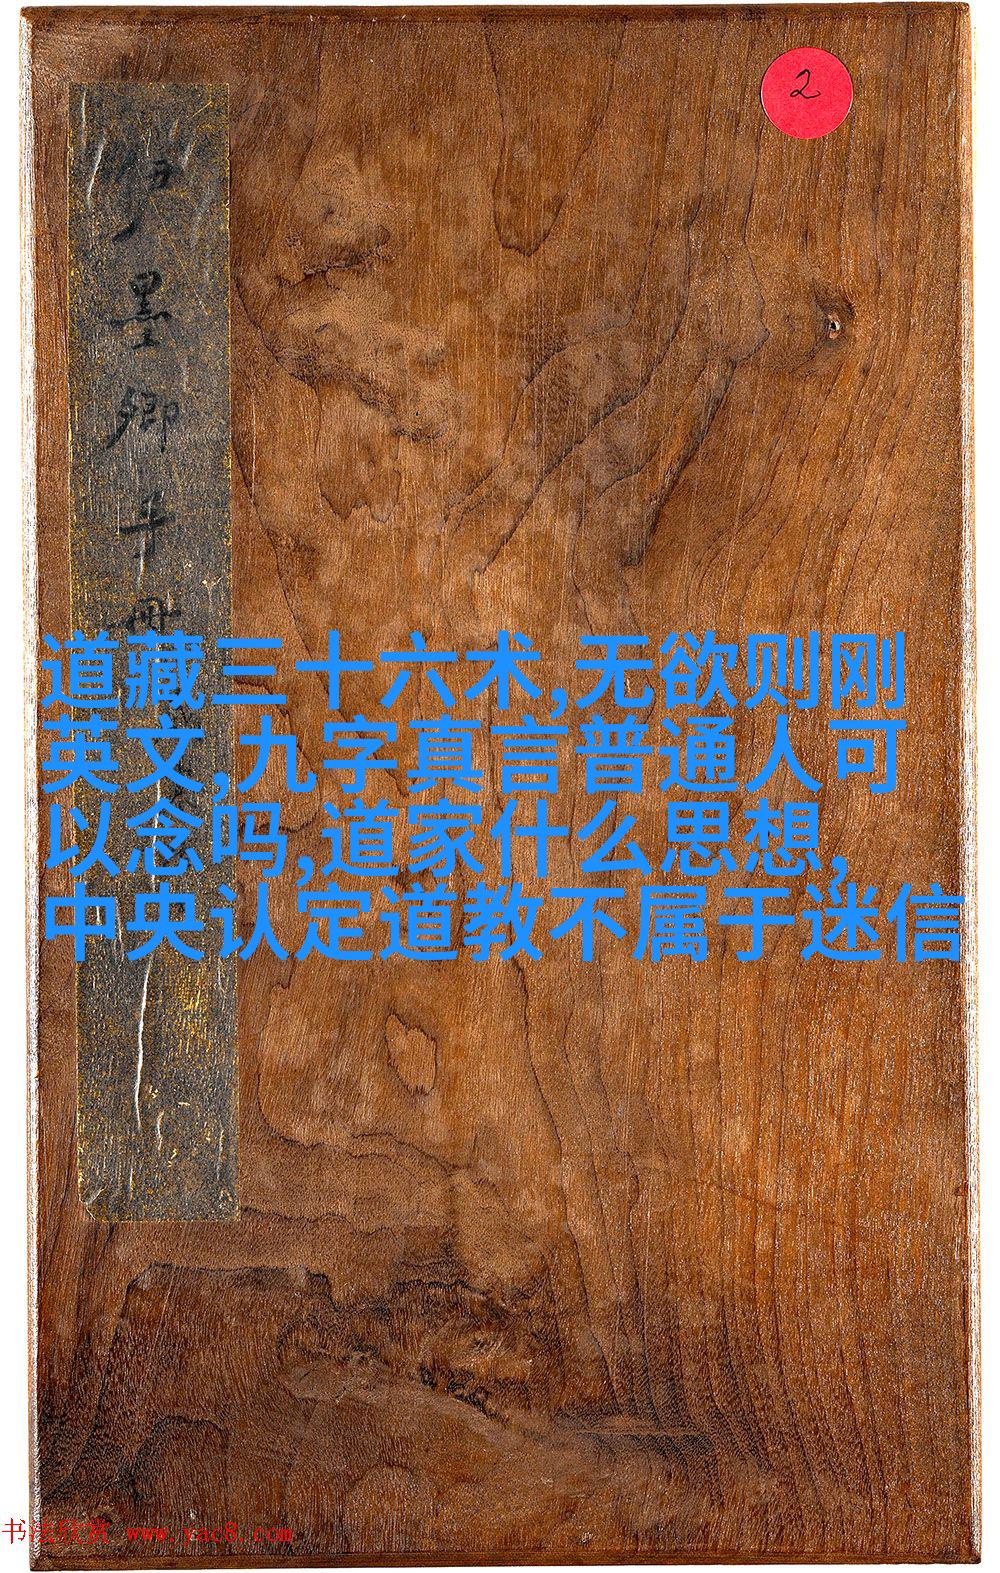 2
墨卿手冊
道藏三十六术,无欲则刚
英文,九字真言普通人可
以念吗,道家什么思想,
中央认定道教不属于迷信
书法欣赏 www.yac8.com